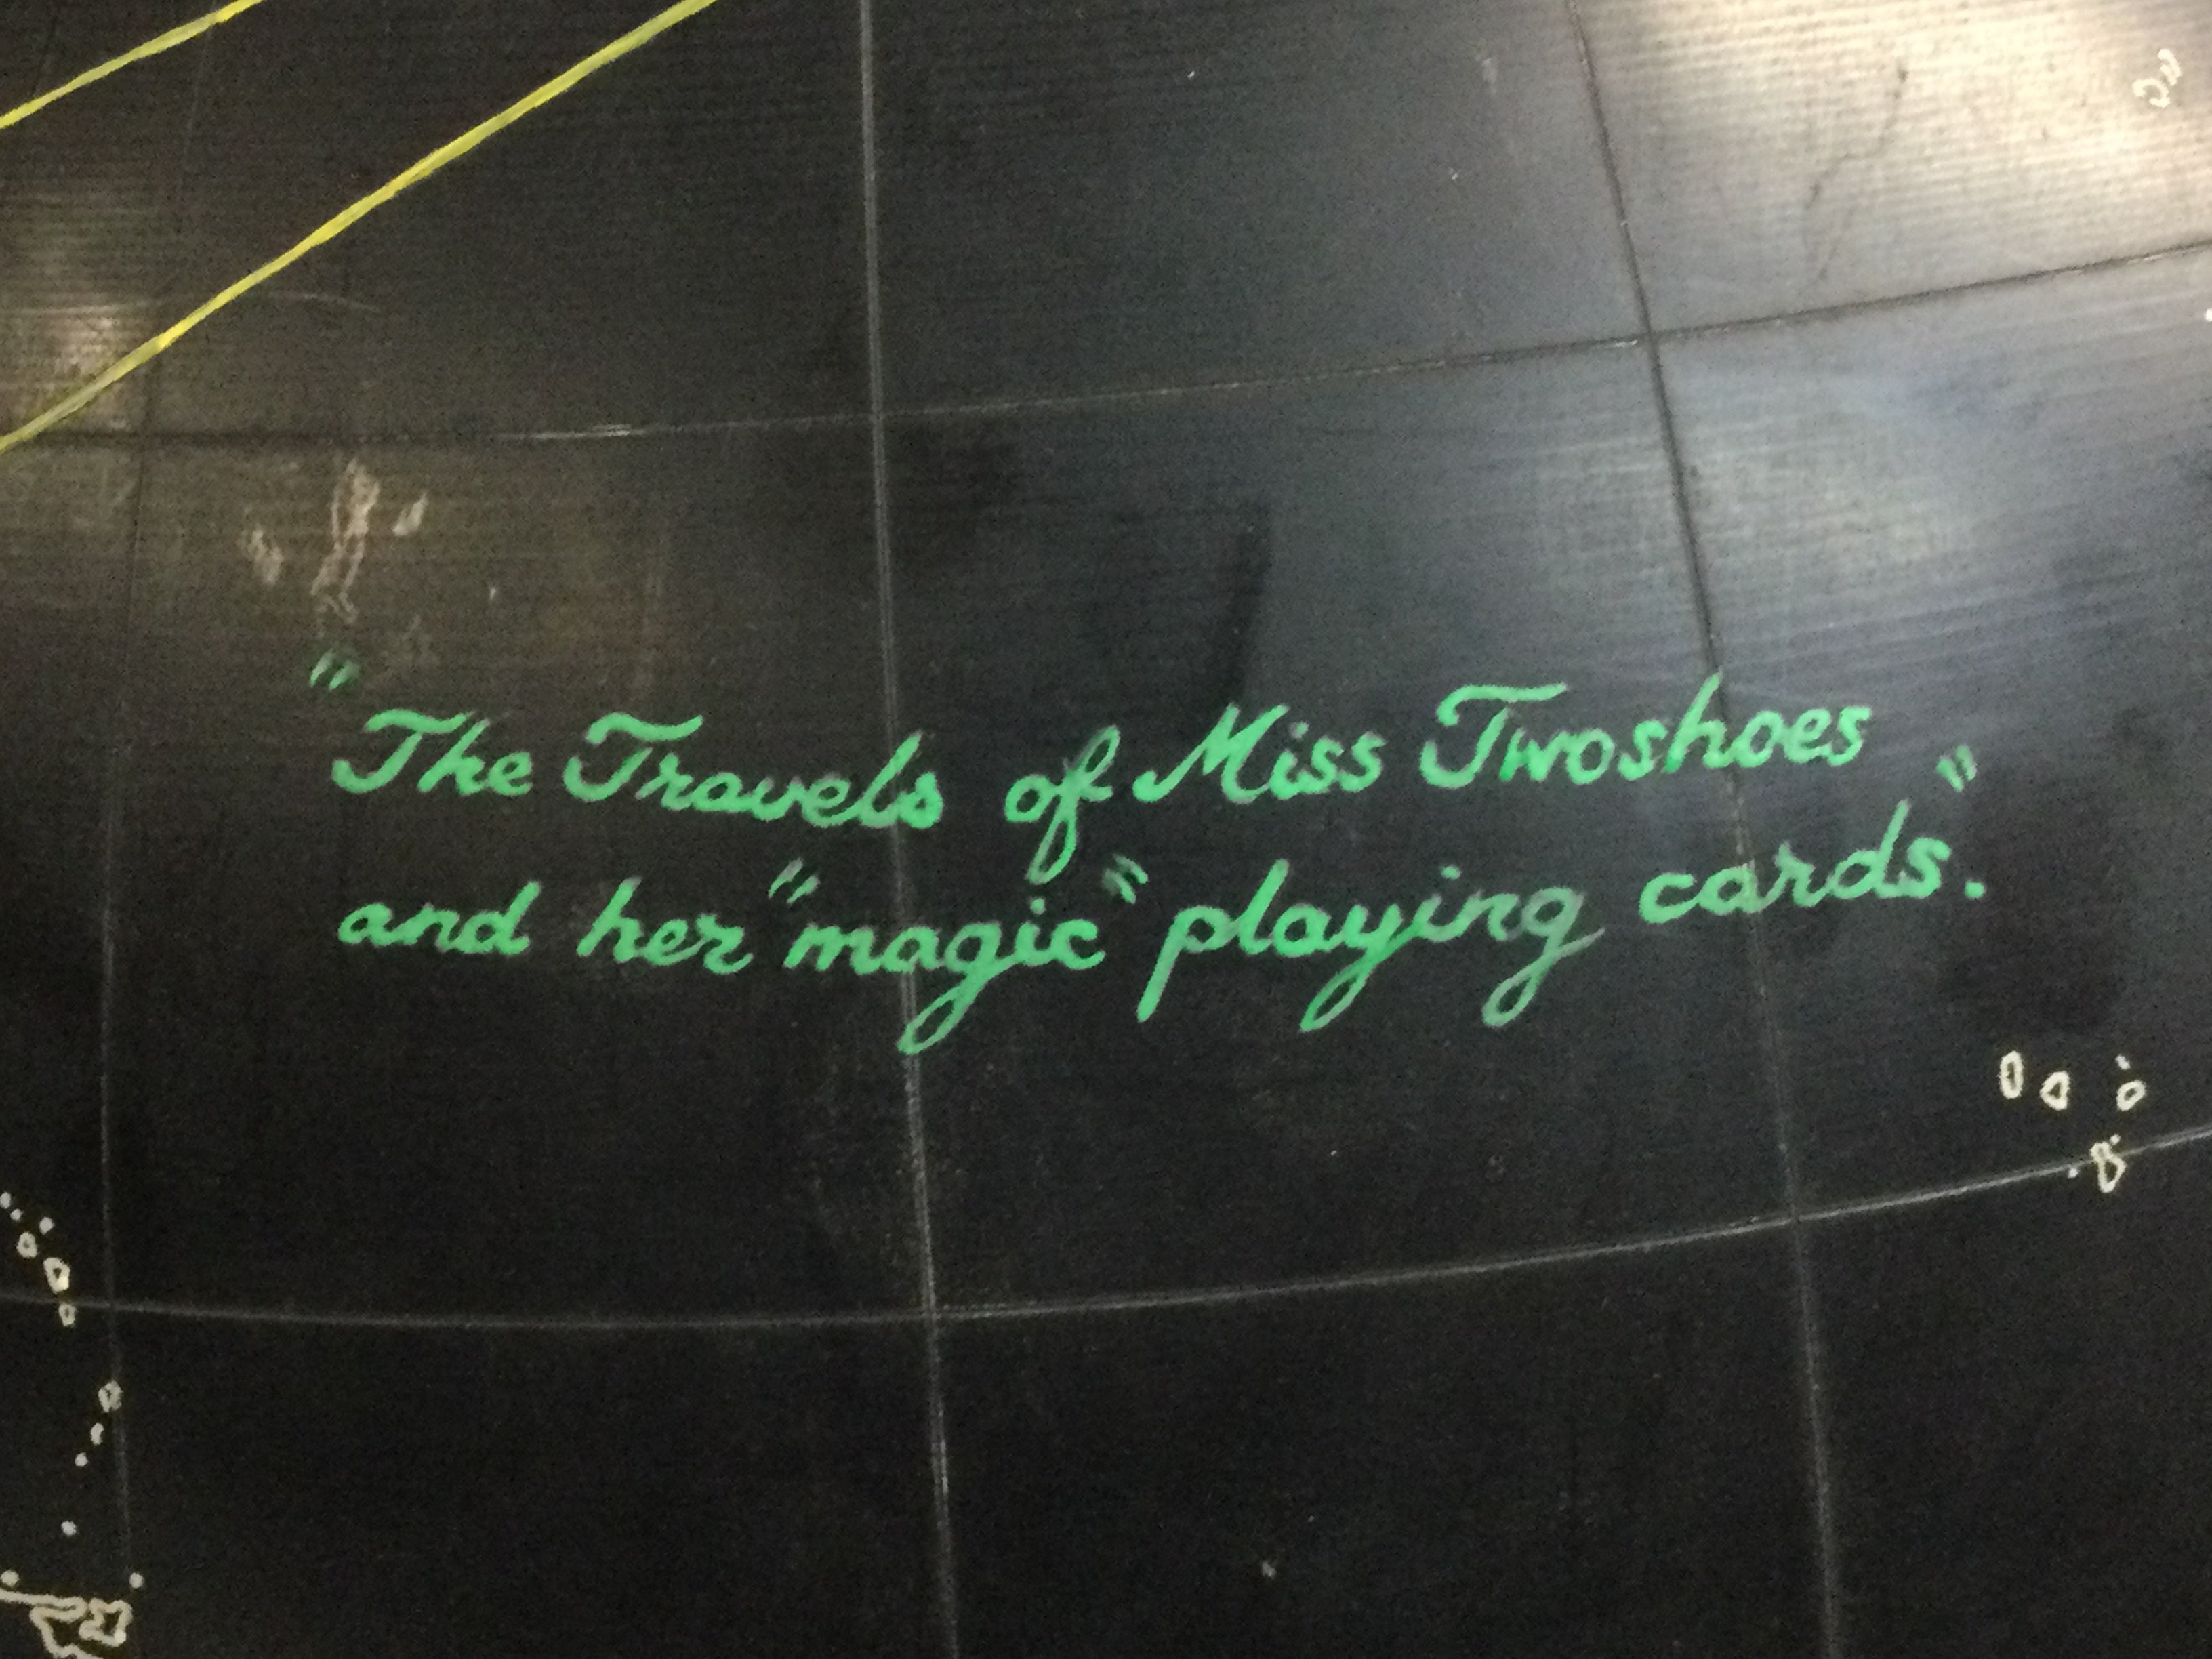 "The Travels of Miss Twoshoes
and her "magic" playing cards."